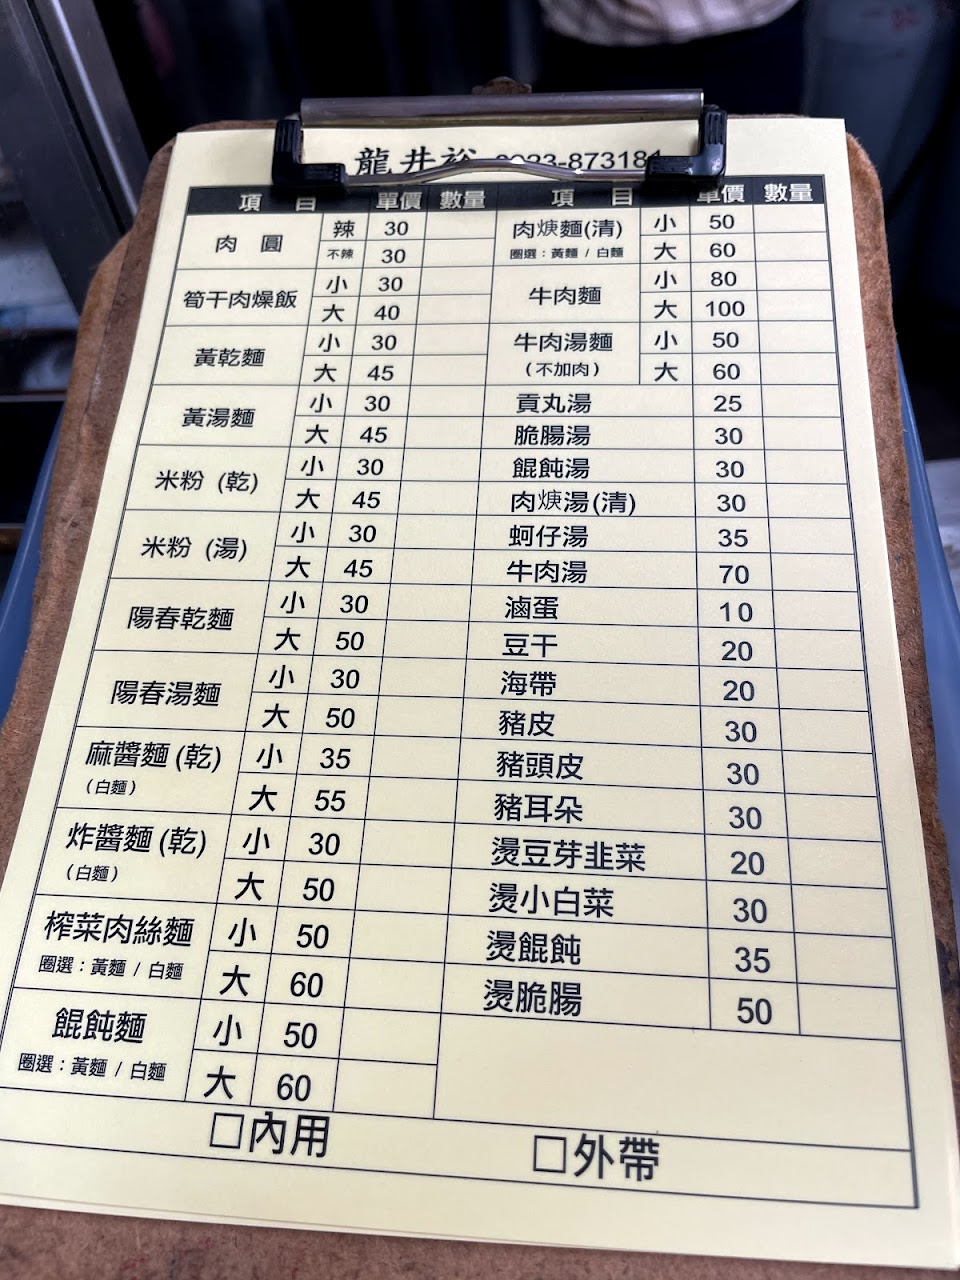 龍井裕 0923-873181
項 目 單價 數量 項 目 單價 數量
肉 圓 辣 30
不辣 30
筍干肉燥飯 小 30
大 40
黃乾麵 小 30
大 45
黃湯麵 小 30
大 45
米粉 (乾) 小 30
大 45
米粉 (湯) 小 30
大 45
陽春乾麵 小 30
大 50
陽春湯麵 小 30
大 50
麻醬麵 (乾) 小 35
(白麵) 大 55
炸醬麵 (乾) 小 30
(白麵) 大 50
榨菜肉絲麵 小 50
圈選：黃麵 / 白麵 大 60
餛飩麵 小 50
圈選：黃麵 / 白麵 大 60
肉焿麵(清) 小 50
圈選：黃麵 / 白麵 大 60
牛肉麵 小 80
大 100
牛肉湯麵 小 50
(不加肉) 大 60
貢丸湯 25
脆腸湯 30
餛飩湯 30
肉焿湯(清) 30
蚵仔湯 35
牛肉湯 70
滷蛋 10
豆干 20
海帶 20
豬皮 30
豬頭皮 30
豬耳朵 30
燙豆芽韭菜 20
燙小白菜 30
燙餛飩 35
燙脆腸 50
□內用 □外帶